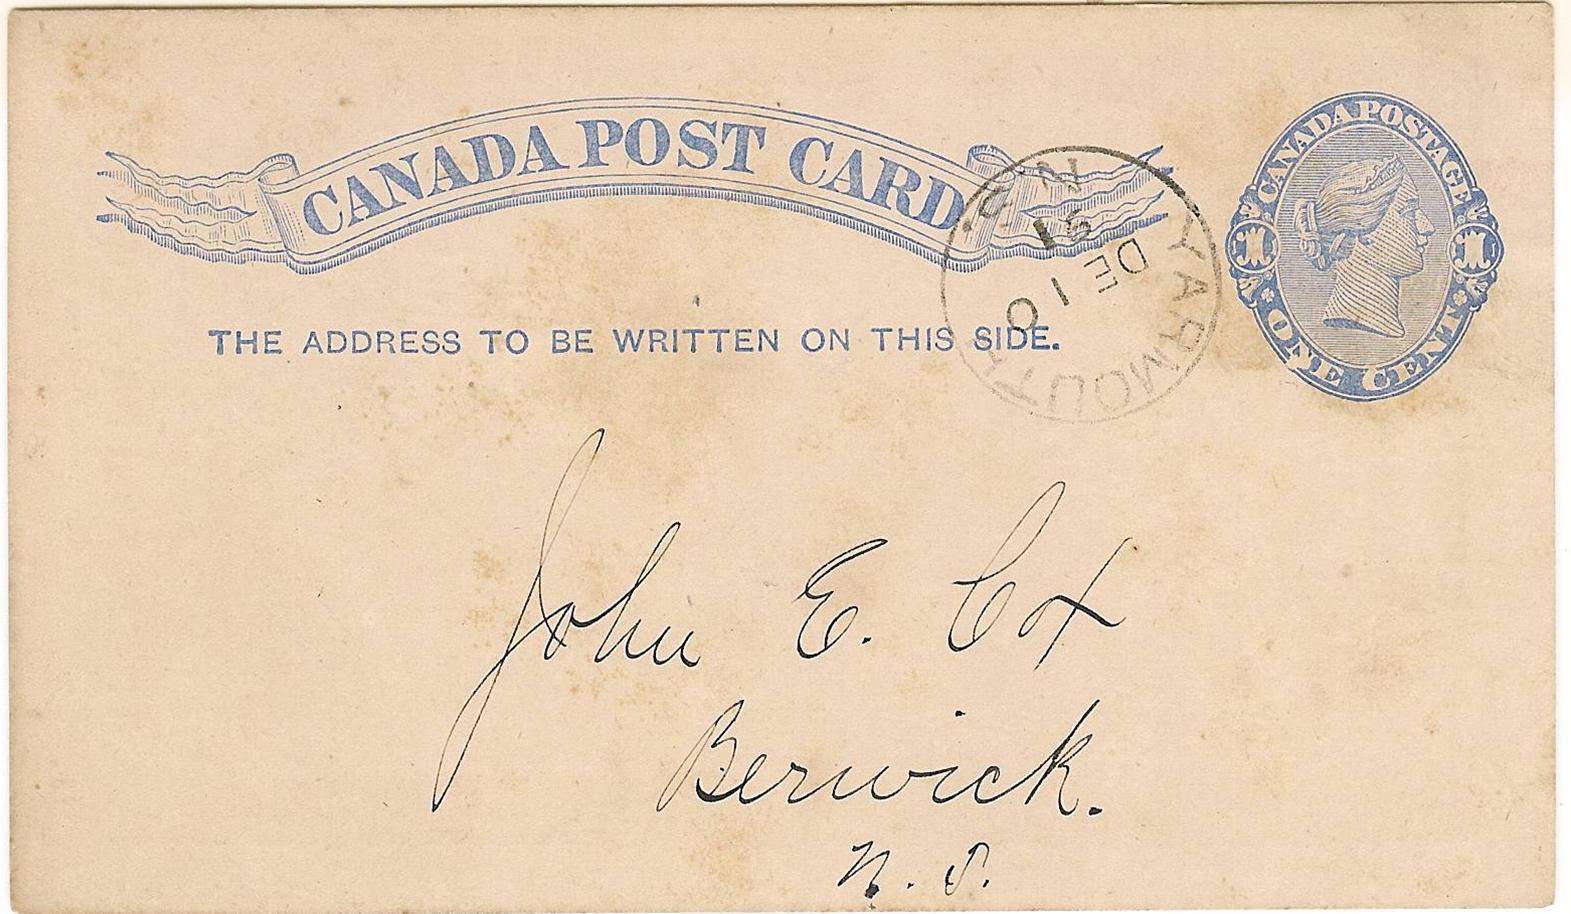 CANADA POST CARD
CANADA POSTAGE
1 1
ONE CENT
YARMOUTH N.S.
DE 10
91
THE ADDRESS TO BE WRITTEN ON THIS SIDE.
John E. Cox
Berwick.
N. S.